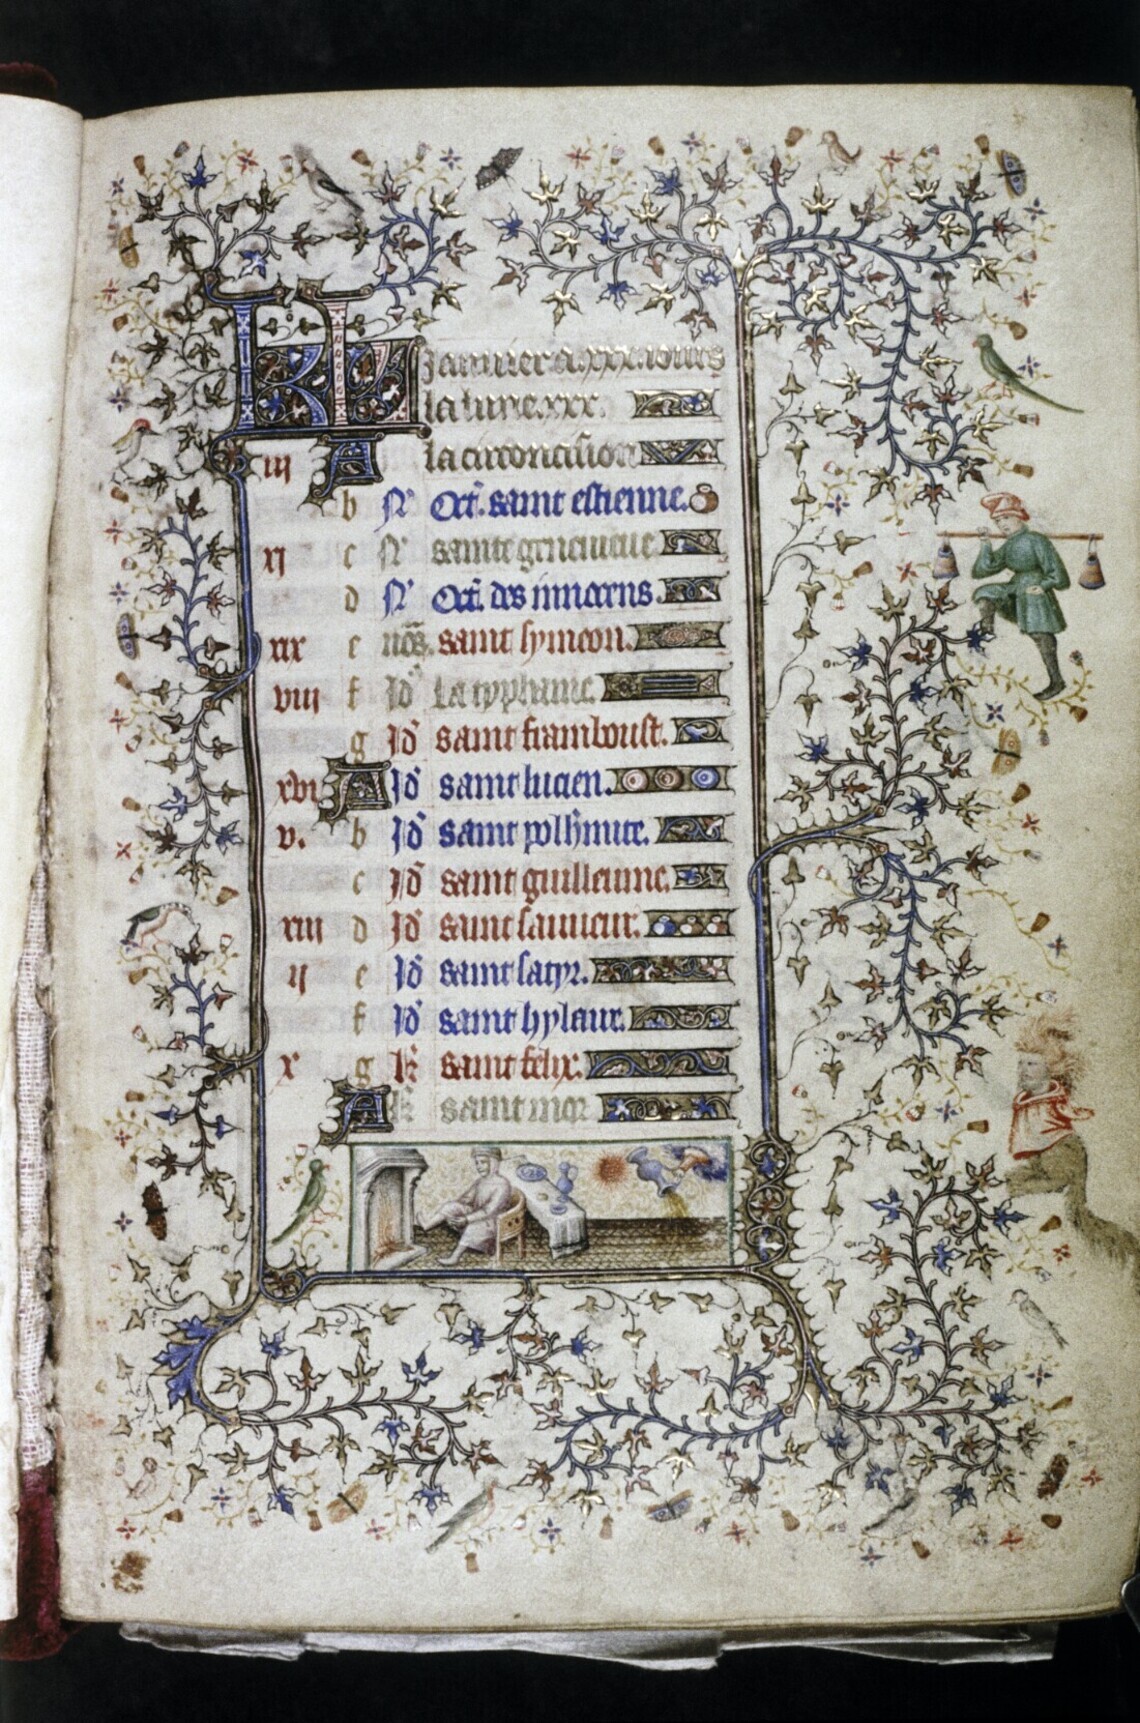 KL Janvier a .xxxi. iours
la lune .xxx.
iii A la circoncision
b Nͦ Oct. saint estienne.
xi c Nͦ sainte genevieve
d Nͦ Oct. des innocens.
xix e nōs. saint symeon.
viii f Jdͦ La typhaine.
g Jdͦ saint framboust.
xvi A Jdͦ saint lucien.
v. b Jdͦ saint polh̄mite.
c Jdͦ saint guilleume.
xiii d Jdͦ saint sauveur.
ii e Jdͦ saint satyr.
f Jdͦ saint hylaire.
x g kͭ saint felix.
A kͭ saint mor